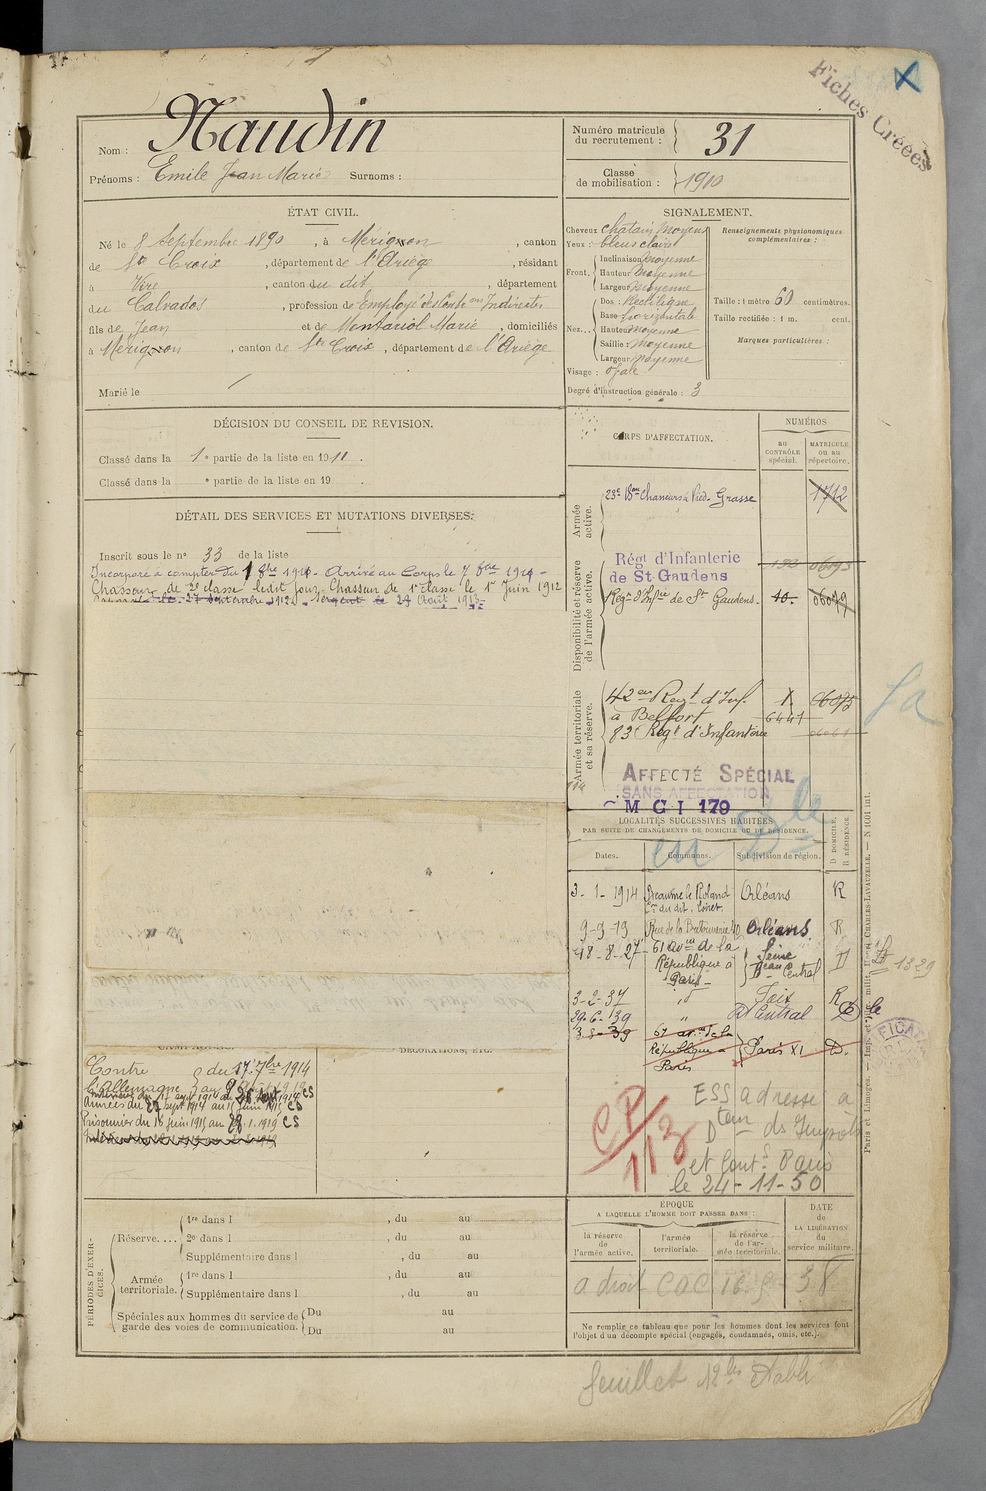 Fiches Créées
Nom : Naudin
Prénoms : Emile Jean Marie Surnoms :
Numéro matricule du recrutement : 31
Classe de mobilisation : 1910
ÉTAT CIVIL.
Né le 8 Septembre 1890, à Mérignon, canton
de Ste Croix, département de l'Ariège, résidant
à Vire, canton du dit, département
du Calvados, profession de Employé des Contions Indirectes
fils de Jean et de Montariol Marie, domiciliés
à Mérignon, canton de Ste Croix, département de l'Ariège
Marié le
SIGNALEMENT.
Cheveux chatain moyen
Yeux : bleus clairs
Front. Inclinaison moyenne
Hauteur moyenne
Largeur moyenne
Nez... Dos : Rectiligne
Base horizontale
Hauteur moyenne
Saillie : moyenne
Largeur moyenne
Visage : ovale
Degré d'instruction générale : 3
Renseignements physionomiques complémentaires :
Taille : 1 mètre 60 centimètres.
Taille rectifiée : 1 m. cent.
Marques particulières :
DÉCISION DU CONSEIL DE REVISION.
Classé dans la 1e partie de la liste en 1911.
Classé dans la e partie de la liste en 19
DÉTAIL DES SERVICES ET MUTATIONS DIVERSES.
Inscrit sous le no 33 de la liste
Incorporé à compter du 1 8bre 1911. Arrivé au Corps le
Chasseur de 2e classe ledit jour. Chasseur de 1e classe le 1er Juin 1912
Sergent le 24 Août 1913
CORPS D'AFFECTATION.
NUMÉROS
AU CONTRÔLE spécial.
MATRICULE OU AU répertoire.
Armée active.
23e Bon Chasseurs à Pied. Grasse 1712
Disponibilité et réserve de l'armée active.
Régt d'Infanterie
de St Gaudens
Régt d'Infie de St Gaudens. 40.
Armée territoriale et sa réserve.
42e Regt d'Inf.
à Belfort 6441
83e Regt d'Infanterie
AFFECTÉ SPÉCIAL
SANS AFFECTATION
M C I 179
LOCALITÉS SUCCESSIVES HABITÉES
PAR SUITE DE CHANGEMENTS DE DOMICILE OU DE RÉSIDENCE.
Dates. Communes. Subdivision de région. D DOMICILE. R RÉSIDENCE.
3-1-1914 Beaune la Rolande Orléans R
Con du dit. Loiret.
9-9-19 Rue de la Bretonnerie 40 Orléans R
18-8-27 61 avue de la République à Paris Seine Beau Central D
3-2-37 " Foix R
29-6-39 " Central D
3-8-39 67 ave de la République à Paris Paris XI D.
CP
113
ESS adresse à
Dton ds Impots
et Conts Paris
le 24-11-50
DÉCORATIONS, ETC.
Contre l'Allemagne
Prisonnier du 16 juin 1915 au 28.1.1919 CS
PÉRIODES D'EXERCICES.
Réserve.... 1re dans l , du au
2e dans l , du au
Supplémentaire dans l , du au
Armée territoriale. 1re dans l , du au
Supplémentaire dans l , du au
Spéciales aux hommes du service de garde des voies de communication. Du au
Du au
ÉPOQUE
A LAQUELLE L'HOMME DOIT PASSER DANS :
la réserve de l'armée active.
l'armée territoriale.
la réserve de l'armée territoriale.
DATE de LA LIBÉRATION du service militaire.
a droit CAC 16-9-38
Ne remplir ce tableau que pour les hommes dont les services font l'objet d'un décompte spécial (engagés, condamnés, omis, etc.).
feuillet 12bis établi
Paris et Limoges. — Imp. et Libr. milit. Henri CHARLES-LAVAUZELLE.